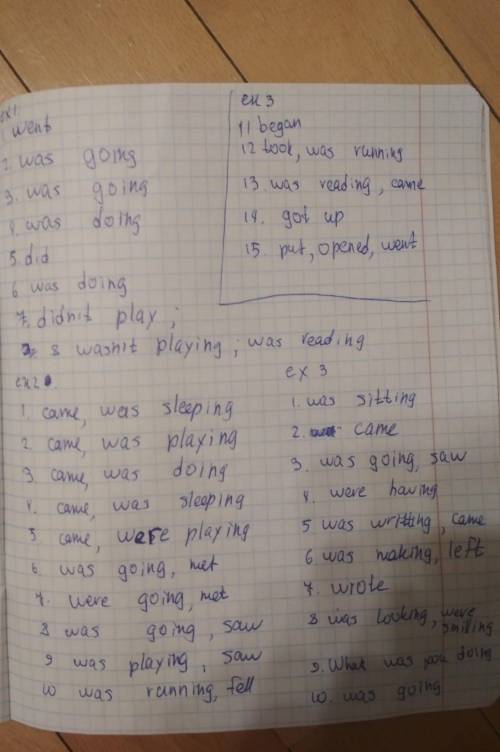 ex1
1. went
2. was going
3. was going
4. was doing
5. did
6 was doing
7. didnit play;
8 wasnit playing; was reading
ex2.
1. came, was sleeping
2. came, was playing
3. came, was doing
4. came, was sleeping
5. came, were playing
6. was going, met
7. were going, met
8 was going, saw
9 was playing, saw
10 was running, fell
ex 3
1. was sitting
2. came
3. was going, saw
4. were having
5 was writting, came
6 was making, left
7. wrote
8 was looking, were smiling
9. What was you doing
10. was going
ex 3
11 began
12 took, was running
13 was reading, came
14. got up
15. put, opened, went